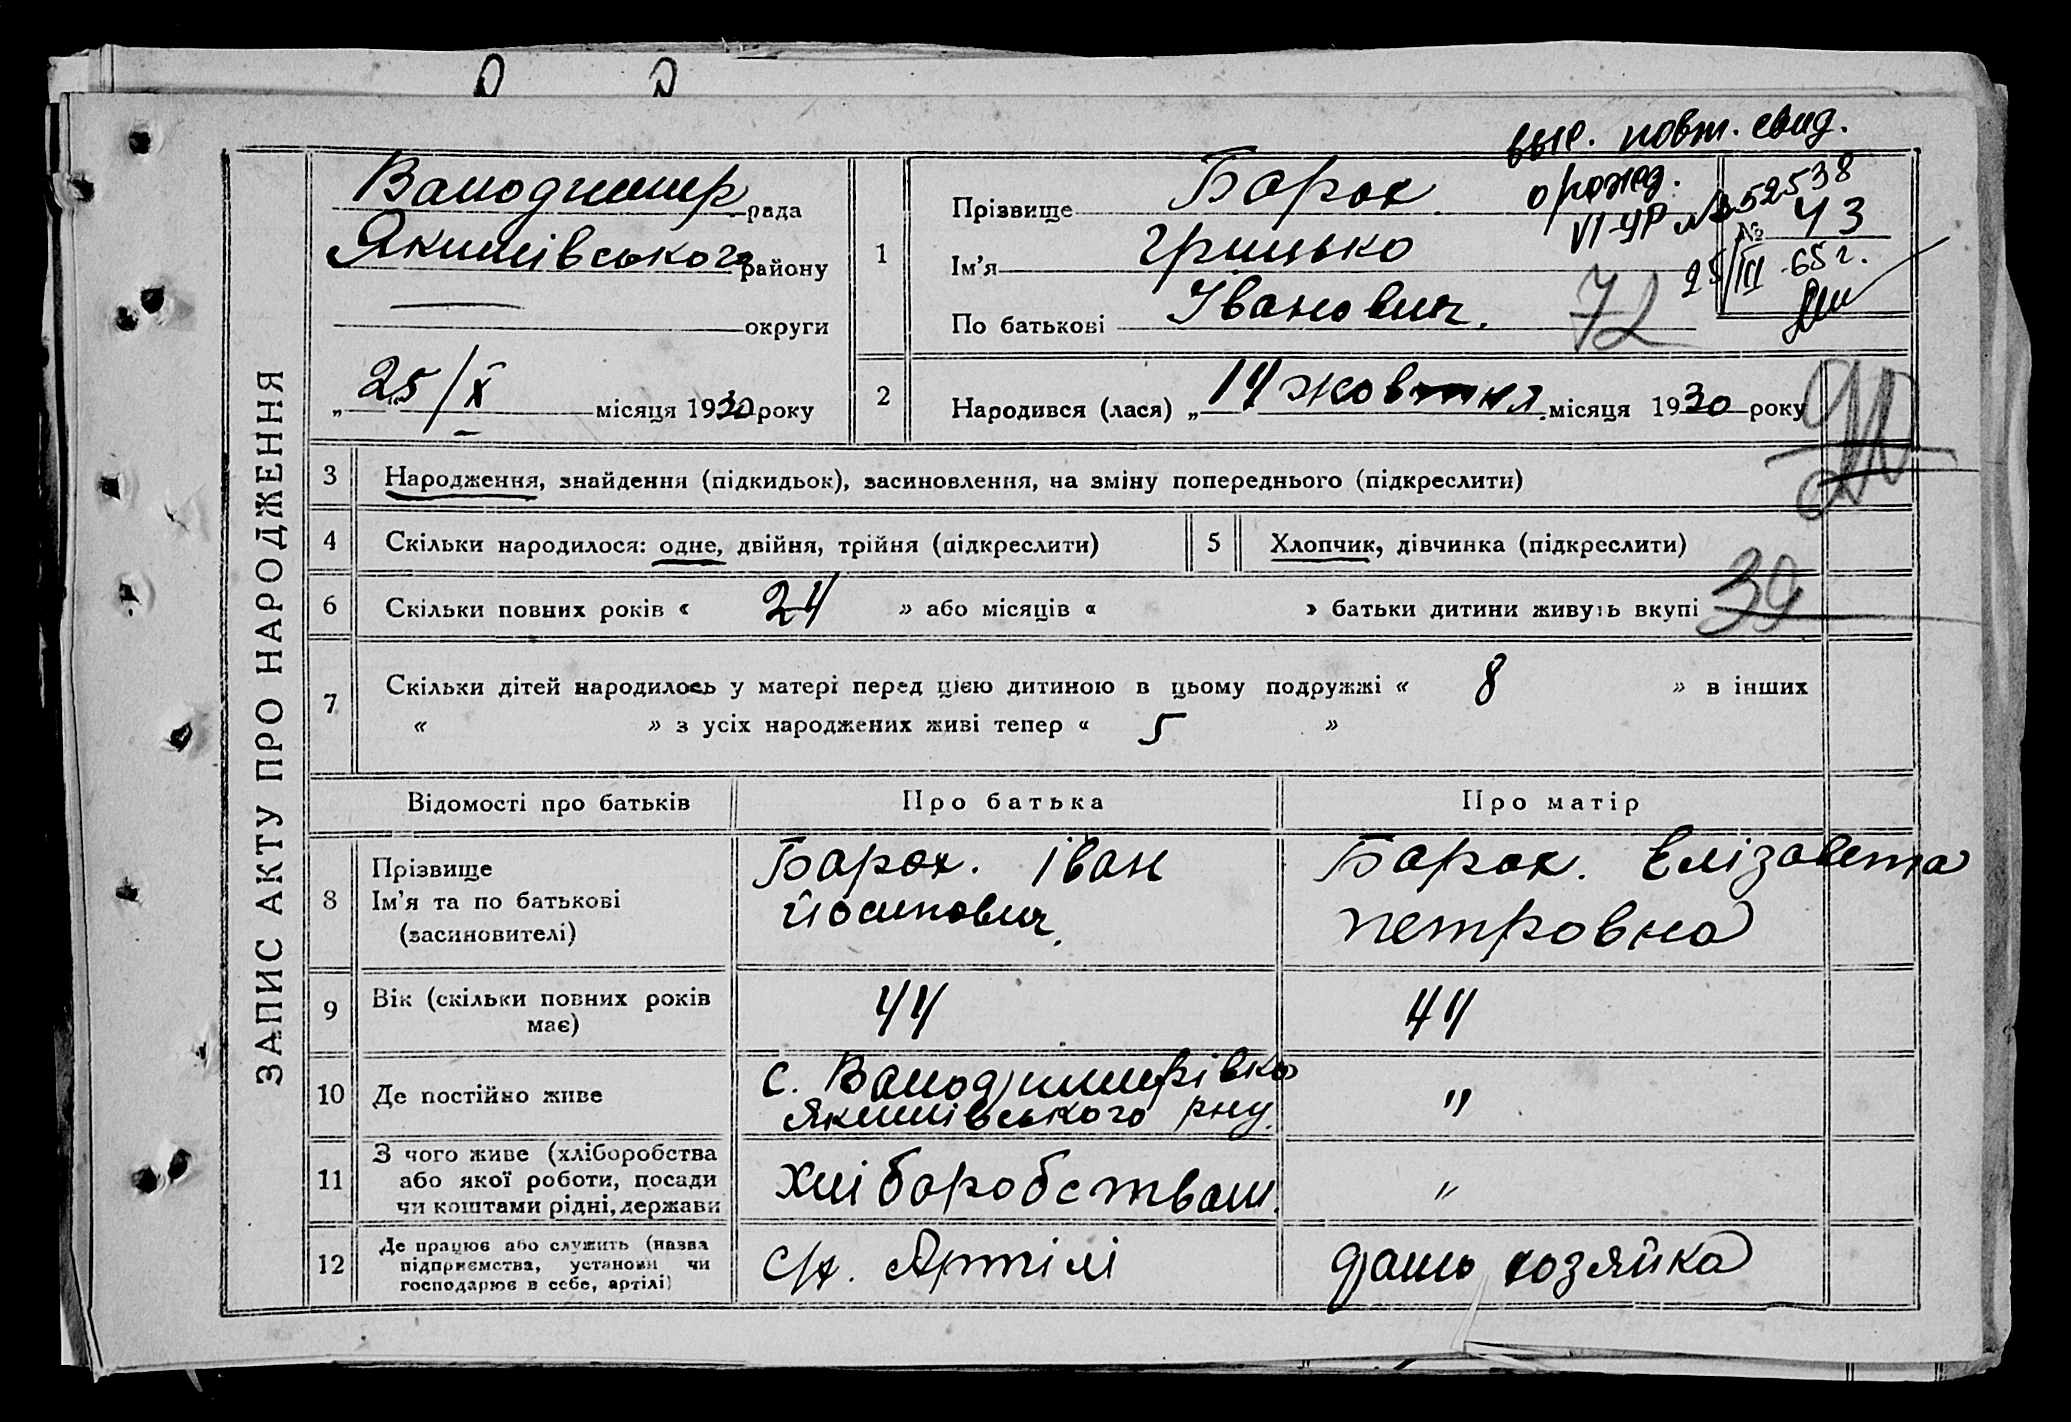 выс. повт. свид.
о рожд.
VI-УР № 52538
25/III -65 г.
ЗАПИС АКТУ ПРО НАРОДЖЕННЯ
Володимир рада
Якимівського району
округи
„ 25/X місяця 1930 року
1
Прізвище Барох
Ім’я Грицько
По батькові Іванович.
№ 43
72
2
Народився (лася) „ 14 жовтня місяця 1930 року
3 Народження, знайдення (підкидьок), засиновлення, на зміну попереднього (підкреслити)
4 Скільки народилося: одне, двійня, трійня (підкреслити)
5 Хлопчик, дівчинка (підкреслити)
6 Скільки повних років « 24 » або місяців « » батьки дитини живуть вкупі
39
7 Скільки дітей народилось у матері перед цією дитиною в цьому подружжі « 8 » в інших
« » з усіх народжених живі тепер « 5 »
Відомості про батьків Про батька Про матір
8 Прізвище
Ім’я та по батькові
(засиновителі)
Барох. Іван
Йосипович.
Барох. Елізавета
Петровна
9 Вік (скільки повних років
має)
44
44
10 Де постійно живе
с. Володимирівка
Якимівського рну.
"
11 З чого живе (хліборобства
або якої роботи, посади
чи коштами рідні, держави
Хліборобством.
"
12 Де працює або служить (назва
підприємства, установи чи
господарює в себе, артілі)
с/г. Артілі
домо хозяйка